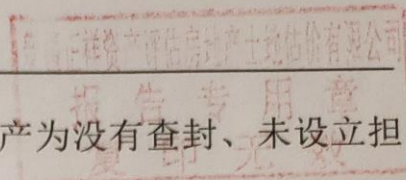 正祥资产评估房地产土地估价有限公司
报告专用章
产为没有查封、未设立担
复印无效